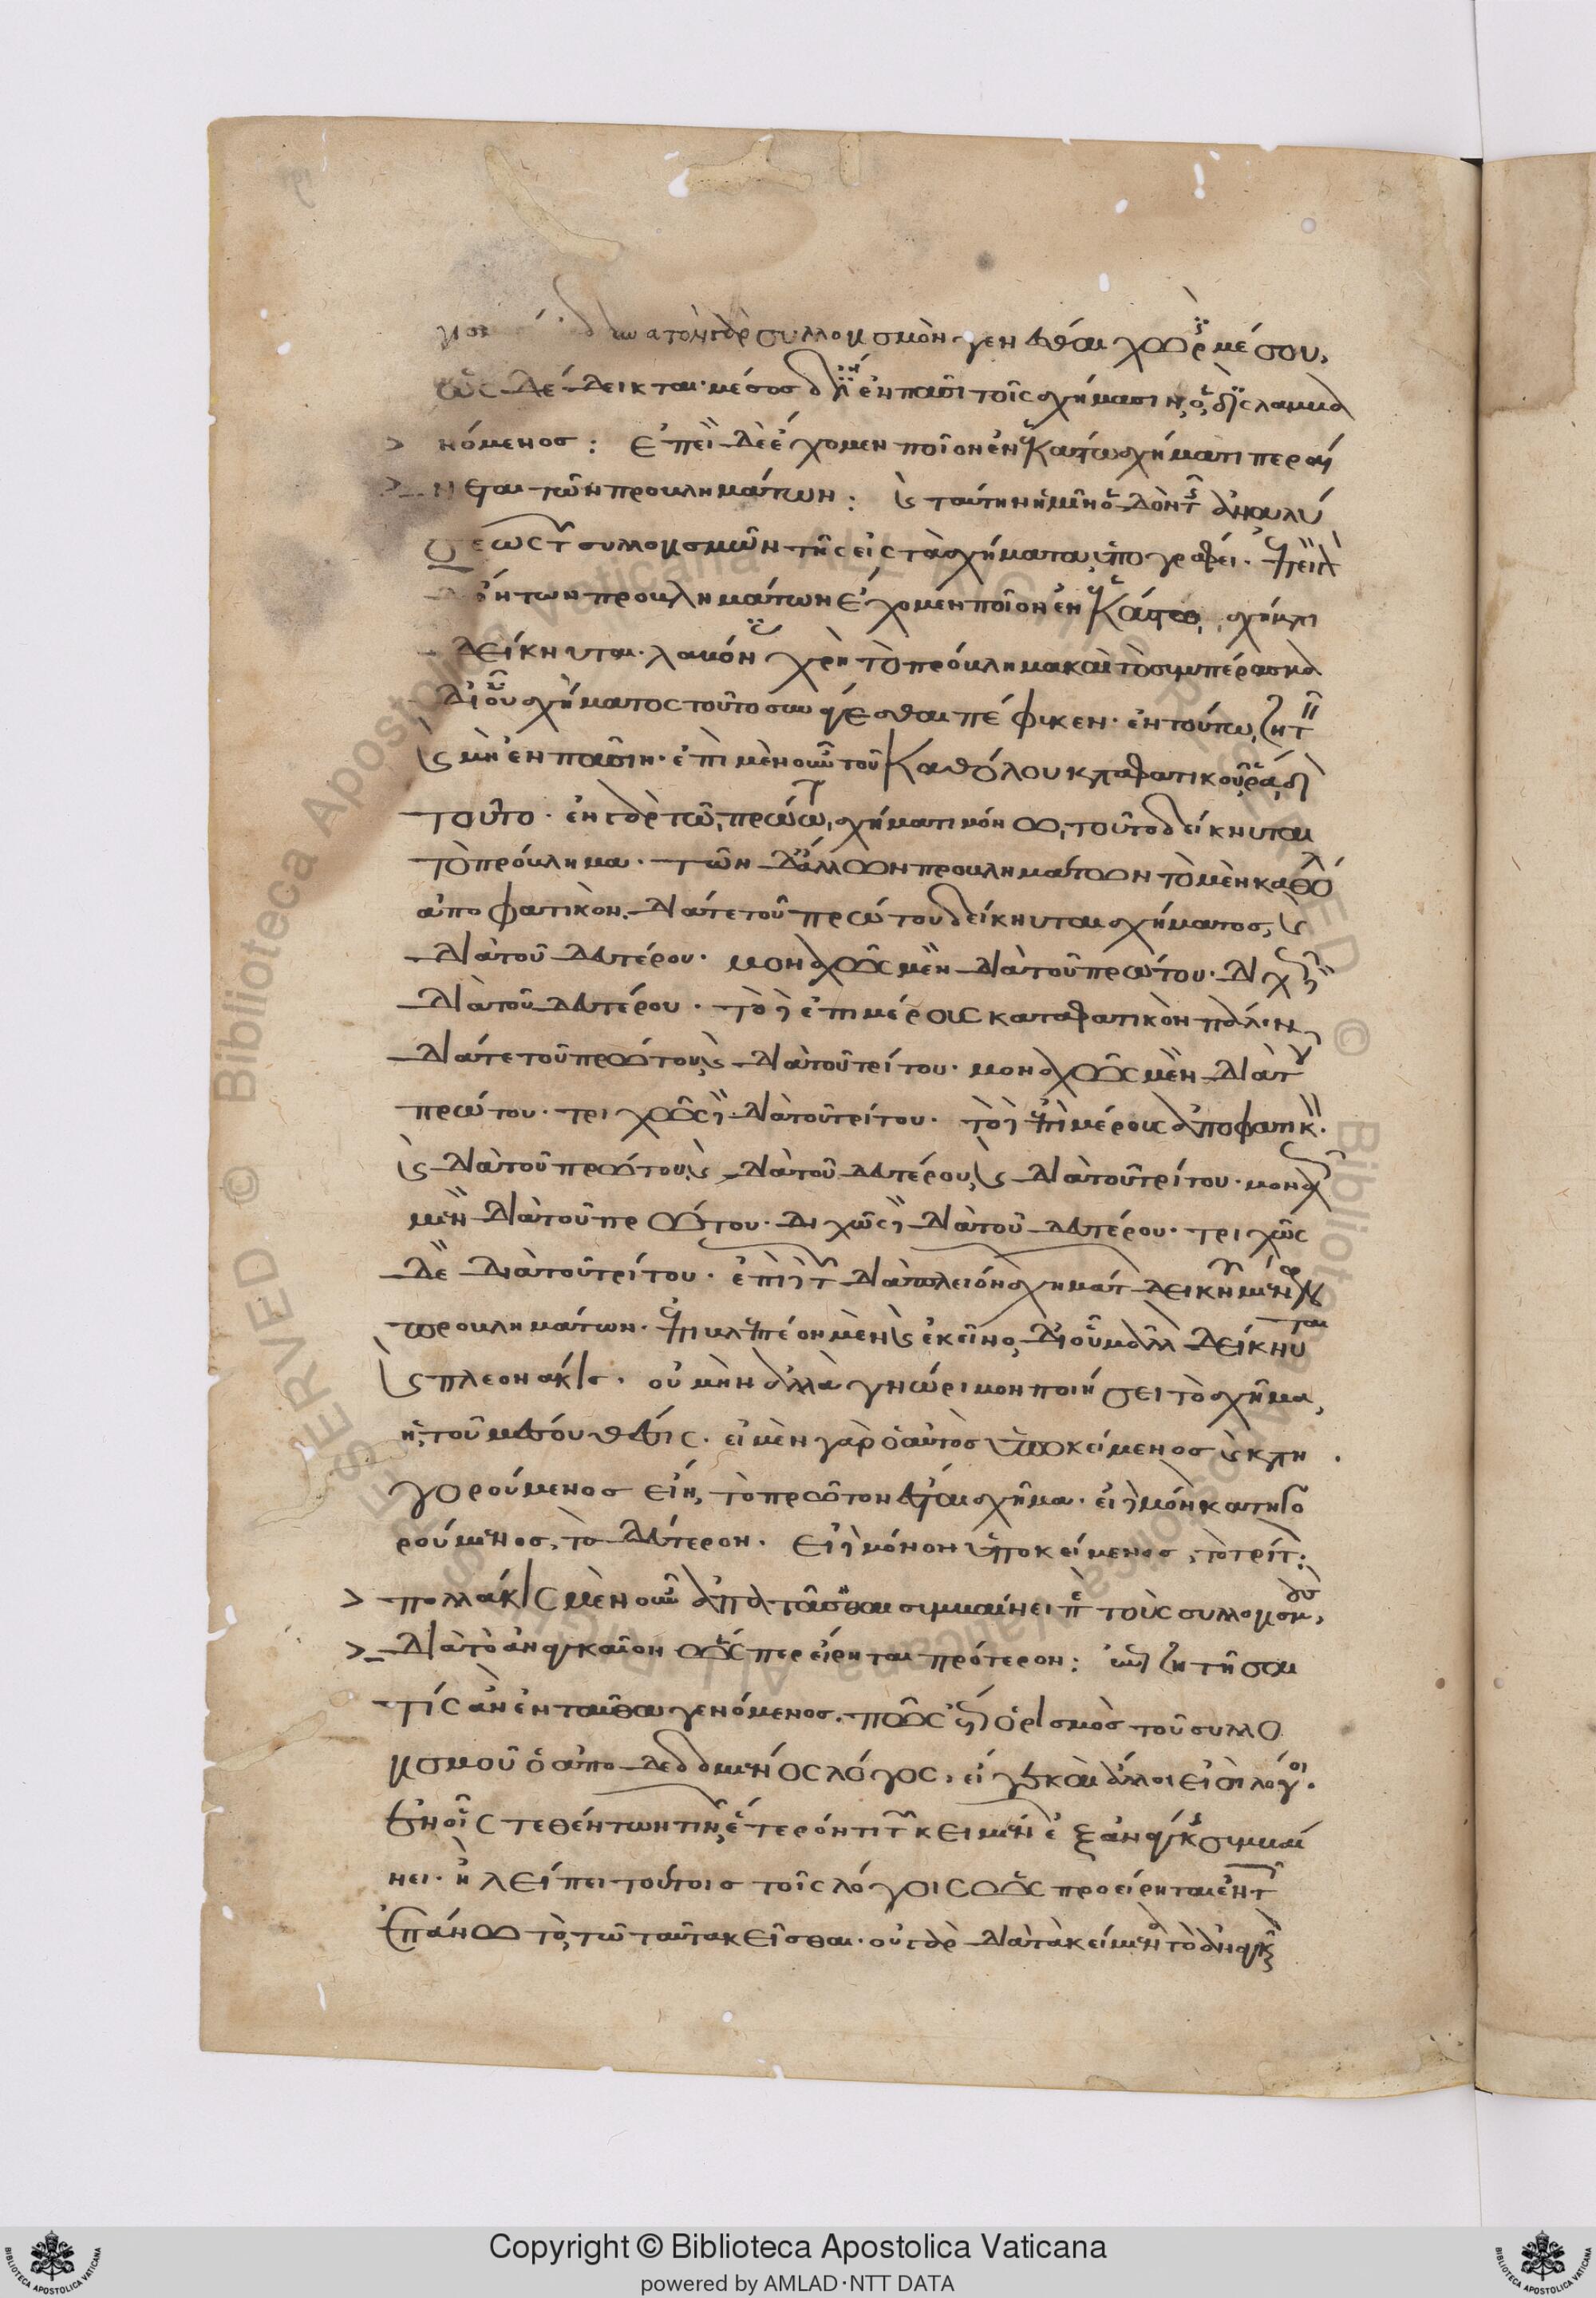 ἀδύνατον γὰρ συλλογισμὸν γενέσθαι χωρὶς μέσου,
ὡς δέδεικται· μέσος δέ ἐστιν ἐν πᾶσι τοῖς σχήμασιν, ὁ δὶς λαμβα
νόμενος: ἐπεὶ δὲ ἔχομεν ποῖον ἐν ἑκάστω σχήματι περαί
νεται τῶν προβλημάτων: καὶ ταύτην ἡμῖν ὁδὸν τῆς ἀναλύ
σεως τῶν συλλογισμῶν τῆς εἰς τὰ σχήματα, ὑπογράφει. ἐπειδὴ
τῶν προβλημάτων ἔχομεν ποῖον ἐν ἑκάστω σχήματι
δείκνυται· λαβόντας χρὴ τὸ πρόβλημα καὶ τὸ συμπέρασμα
δι' οὗ σχήματος τοῦτο συνάγεσθαι πέφυκεν· ἐν τούτω ζητεῖν
καὶ μὴ ἐν πᾶσιν· ἐπὶ μὲν οὖν τοῦ καθόλου καταφατικοῦ ῥάδιον
τοῦτο· ἐν γὰρ τῶ πρώτω σχήματι μόνω, τοῦτο δείκνυται
τὸ πρόβλημα· τῶν δ' ἄλλων προβλημάτων τὸ μὲν καθόλου
ἀποφατικὸν, διά τε τοῦ πρώτου δείκνυται σχήματος, καὶ
διὰ τοῦ δευτέρου· μοναχῶς μὲν διὰ τοῦ πρώτου· διχῶς δὲ
διὰ τοῦ δευτέρου· τὸ δὲ ἐπιμέρους καταφατικὸν πάλιν
διά τε τοῦ πρώτου, καὶ διὰ τοῦ τρίτου· μοναχῶς μὲν διὰ τοῦ
πρώτου· τριχῶς δὲ διὰ τοῦ τρίτου· τὸ δὲ ἐπιμέρους ἀποφατικὸν·
καὶ διὰ τοῦ πρώτου, καὶ διὰ τοῦ δευτέρου, καὶ διὰ τοῦ τρίτου· μοναχῶς
μὲν διὰ τοῦ πρώτου· διχῶς δὲ διὰ τοῦ δευτέρου· τριχῶς
δὲ διὰ τοῦ τρίτου· ἐπὶ δὲ τῶν διὰ πλειόνων σχημάτων δεικνυμένων
προβλημάτων· ἐπιβλεπτέον μὲν καὶ ἐκεῖνο, δι' οὗ μᾶλλον δείκνυται
καὶ πλεονάκις· οὐ μὴν ἀλλὰ γνώριμον ποιήσει τὸ σχῆμα,
ἡ τοῦ μέσου θέσις· εἰ μὲν γὰρ ὁ αὐτὸς ὑποκείμενος καὶ κατη
γορούμενος εἴη, τὸ πρῶτον ἔσται σχῆμα· εἰ δὲ μόνον κατηγο
ρούμενος, τὸ δεύτερον· εἰ δὲ μόνον ὑποκείμενος, τὸ τρίτον:
πολλάκις μὲν οὖν ἀπατᾶσθαι συμβαίνει περὶ τοὺς συλλογισμοὺς,
διὰ τὸ ἀναγκαῖον ὥσπερ εἴρηται πρότερον: ζητῆσαι
τίς ἂν ἐνταῦθα γενόμενος· πῶς ἐστιν ὁρισμὸς τοῦ συλλο
γισμοῦ ὁ ἀποδεδομένος λόγος, εἴ γε καὶ ἄλλοι εἰσὶ λόγοι·
ἐν οἷς τεθέντων τινῶν, ἕτερόν τι τῶν κειμένων ἐξ ἀνάγκης συμβαί
νει· ἢ λείπει τούτοις τοῖς λόγοις ὡς προείρηται ἐν τοῖς
ἐπάνω τὸ, τῶ ταῦτα κεῖσθαι· οὐ γὰρ διὰ τὰ κείμενα τὸ ἀναγκαῖον